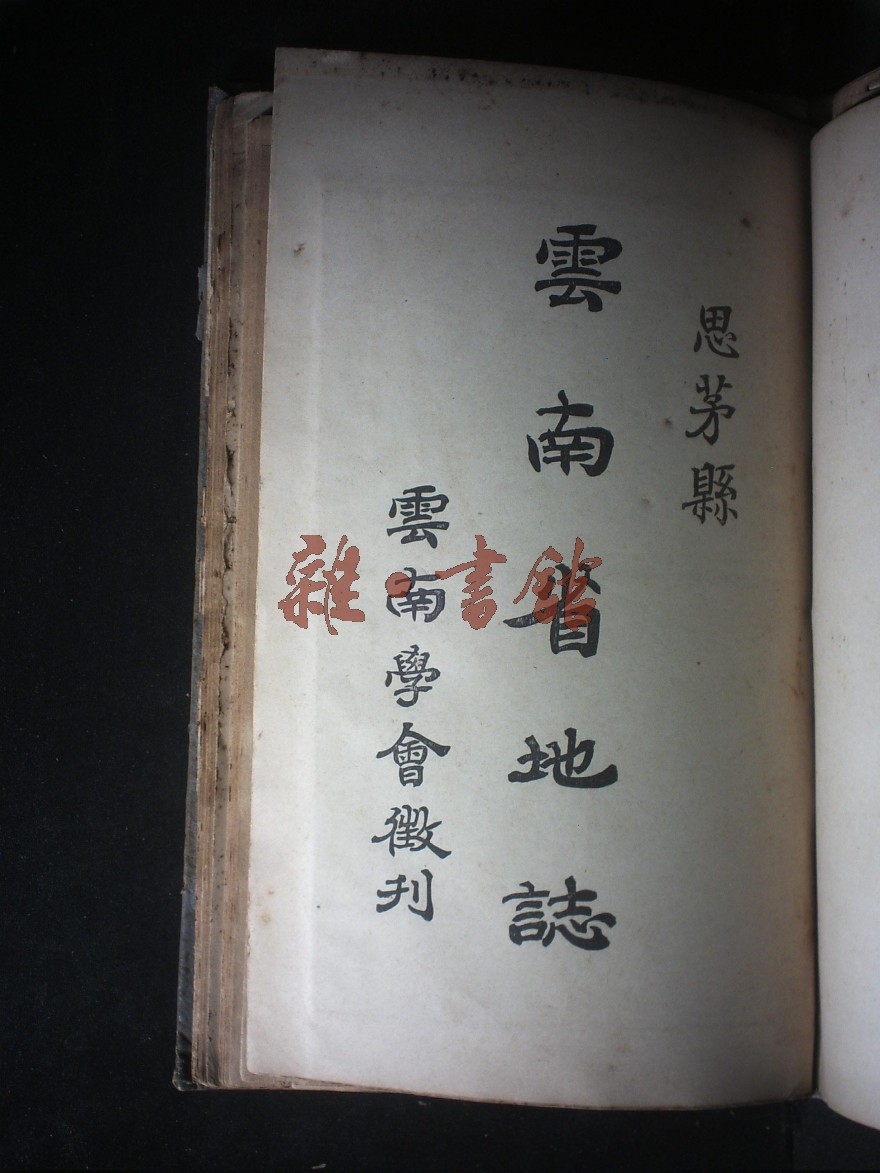 思茅縣
雲南省地誌
雲南學會徵刊
雜·書館